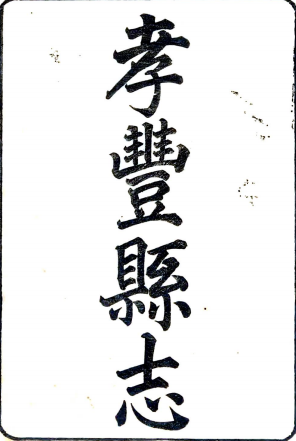 孝豐縣志